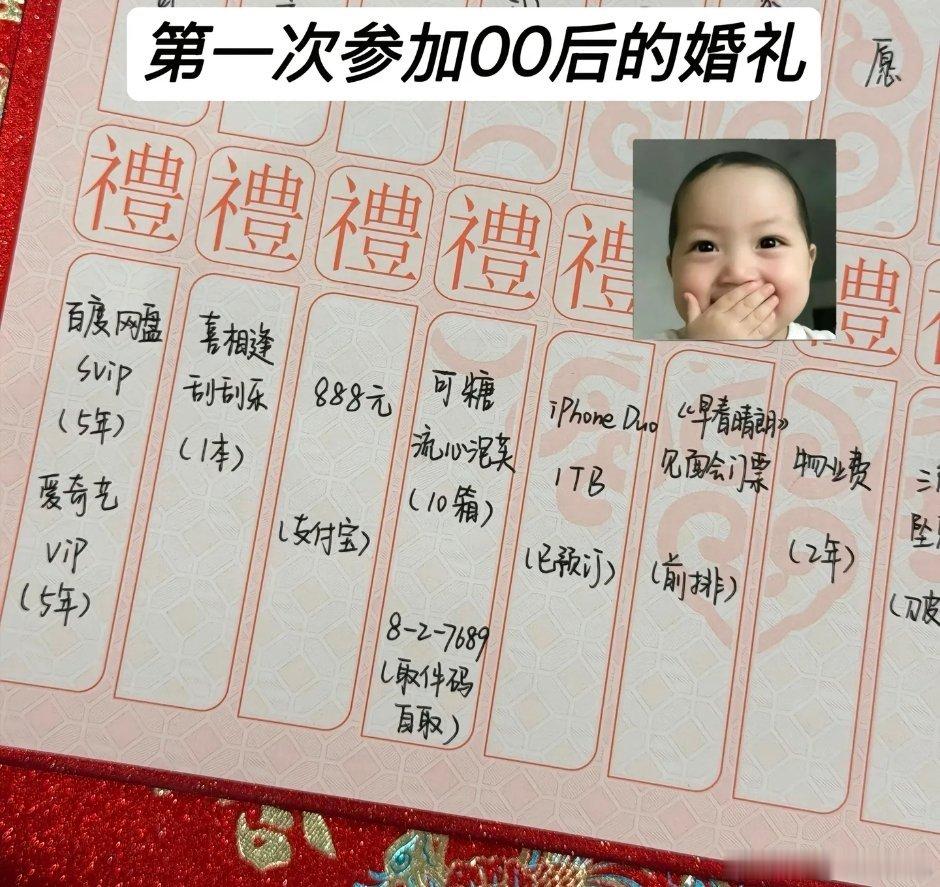 第一次参加00后的婚礼
愿
禮
禮
禮
禮
禮
禮
百度网盘
SVIP
(5年)
爱奇艺
VIP
(5年)
喜相逢
刮刮乐
(1本)
888元
(支付宝)
可糖
流心泡芙
(10箱)
8-2-7689
(取件码
自取)
iPhone Duo
1TB
(已预订)
《早春晴朗》
见面会门票
(前排)
物业费
(2年)
坠